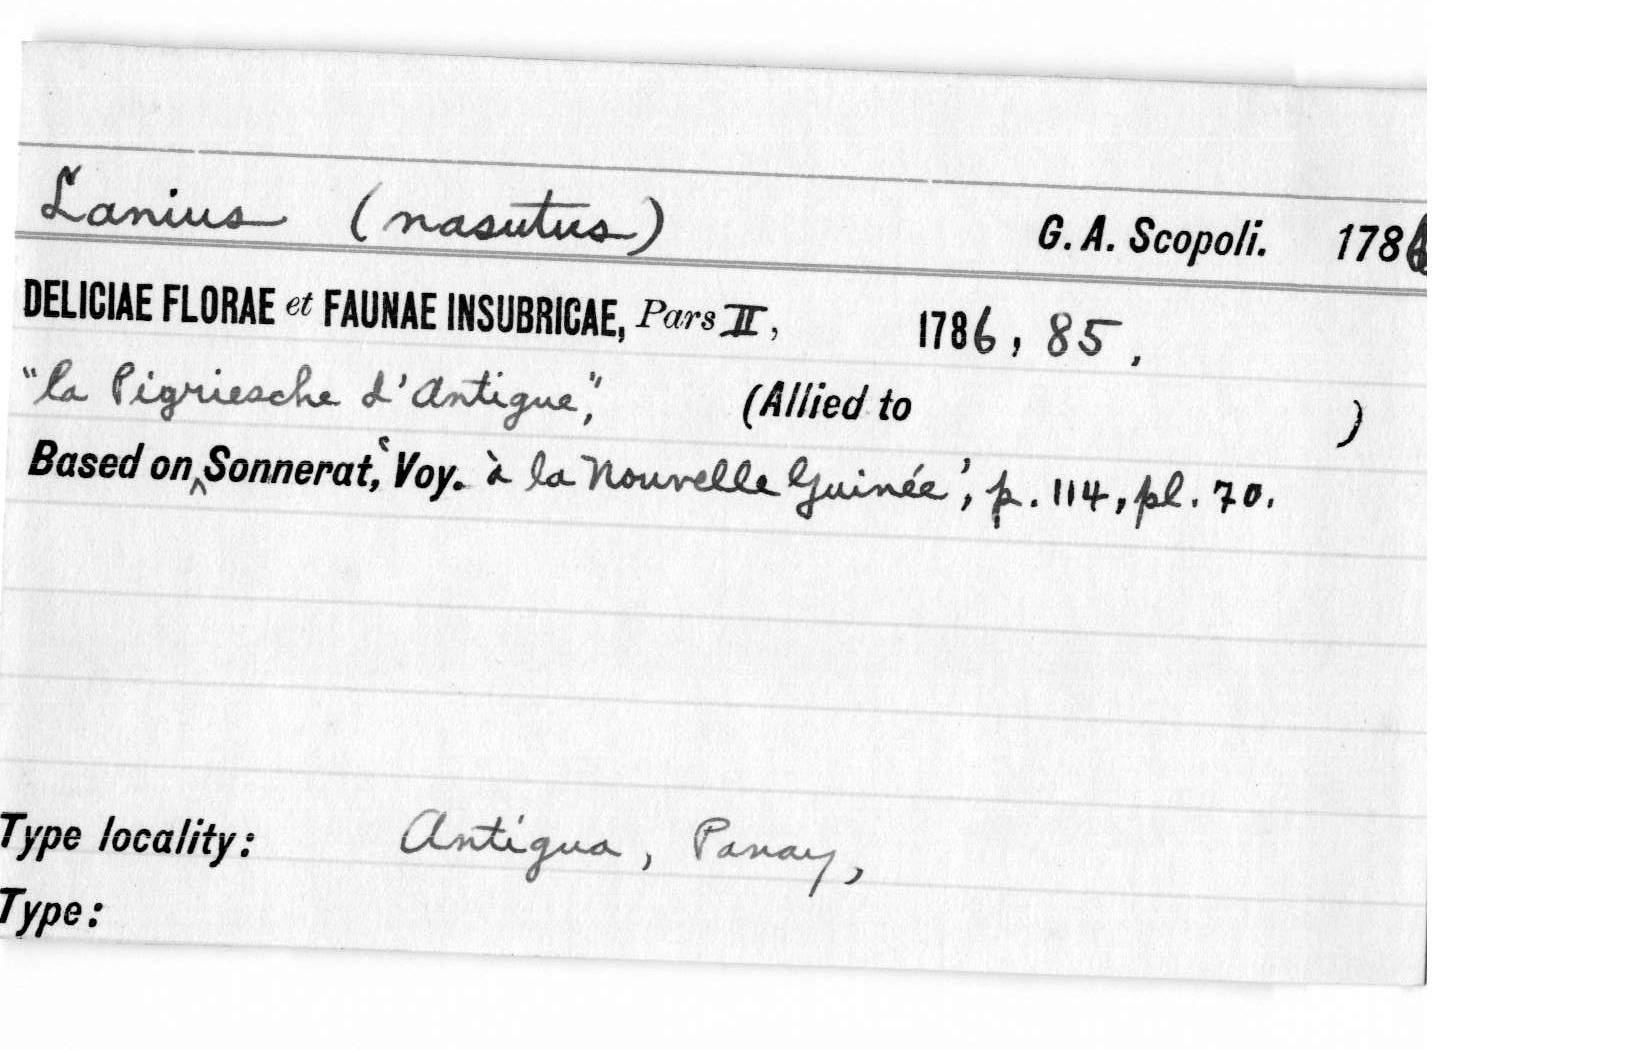 Lanius (nasutus) G. A. Scopoli. 1786
DELICIAE FLORAE et FAUNAE INSUBRICAE, Pars II, 1786, 85,
"la Pigriesche d'Antigue", (Allied to )
Based on ‸ Sonnerat, 'Voy. à la Nouvelle Guinée', p. 114, pl. 70.
Type locality: Antigua, Panay,
Type: